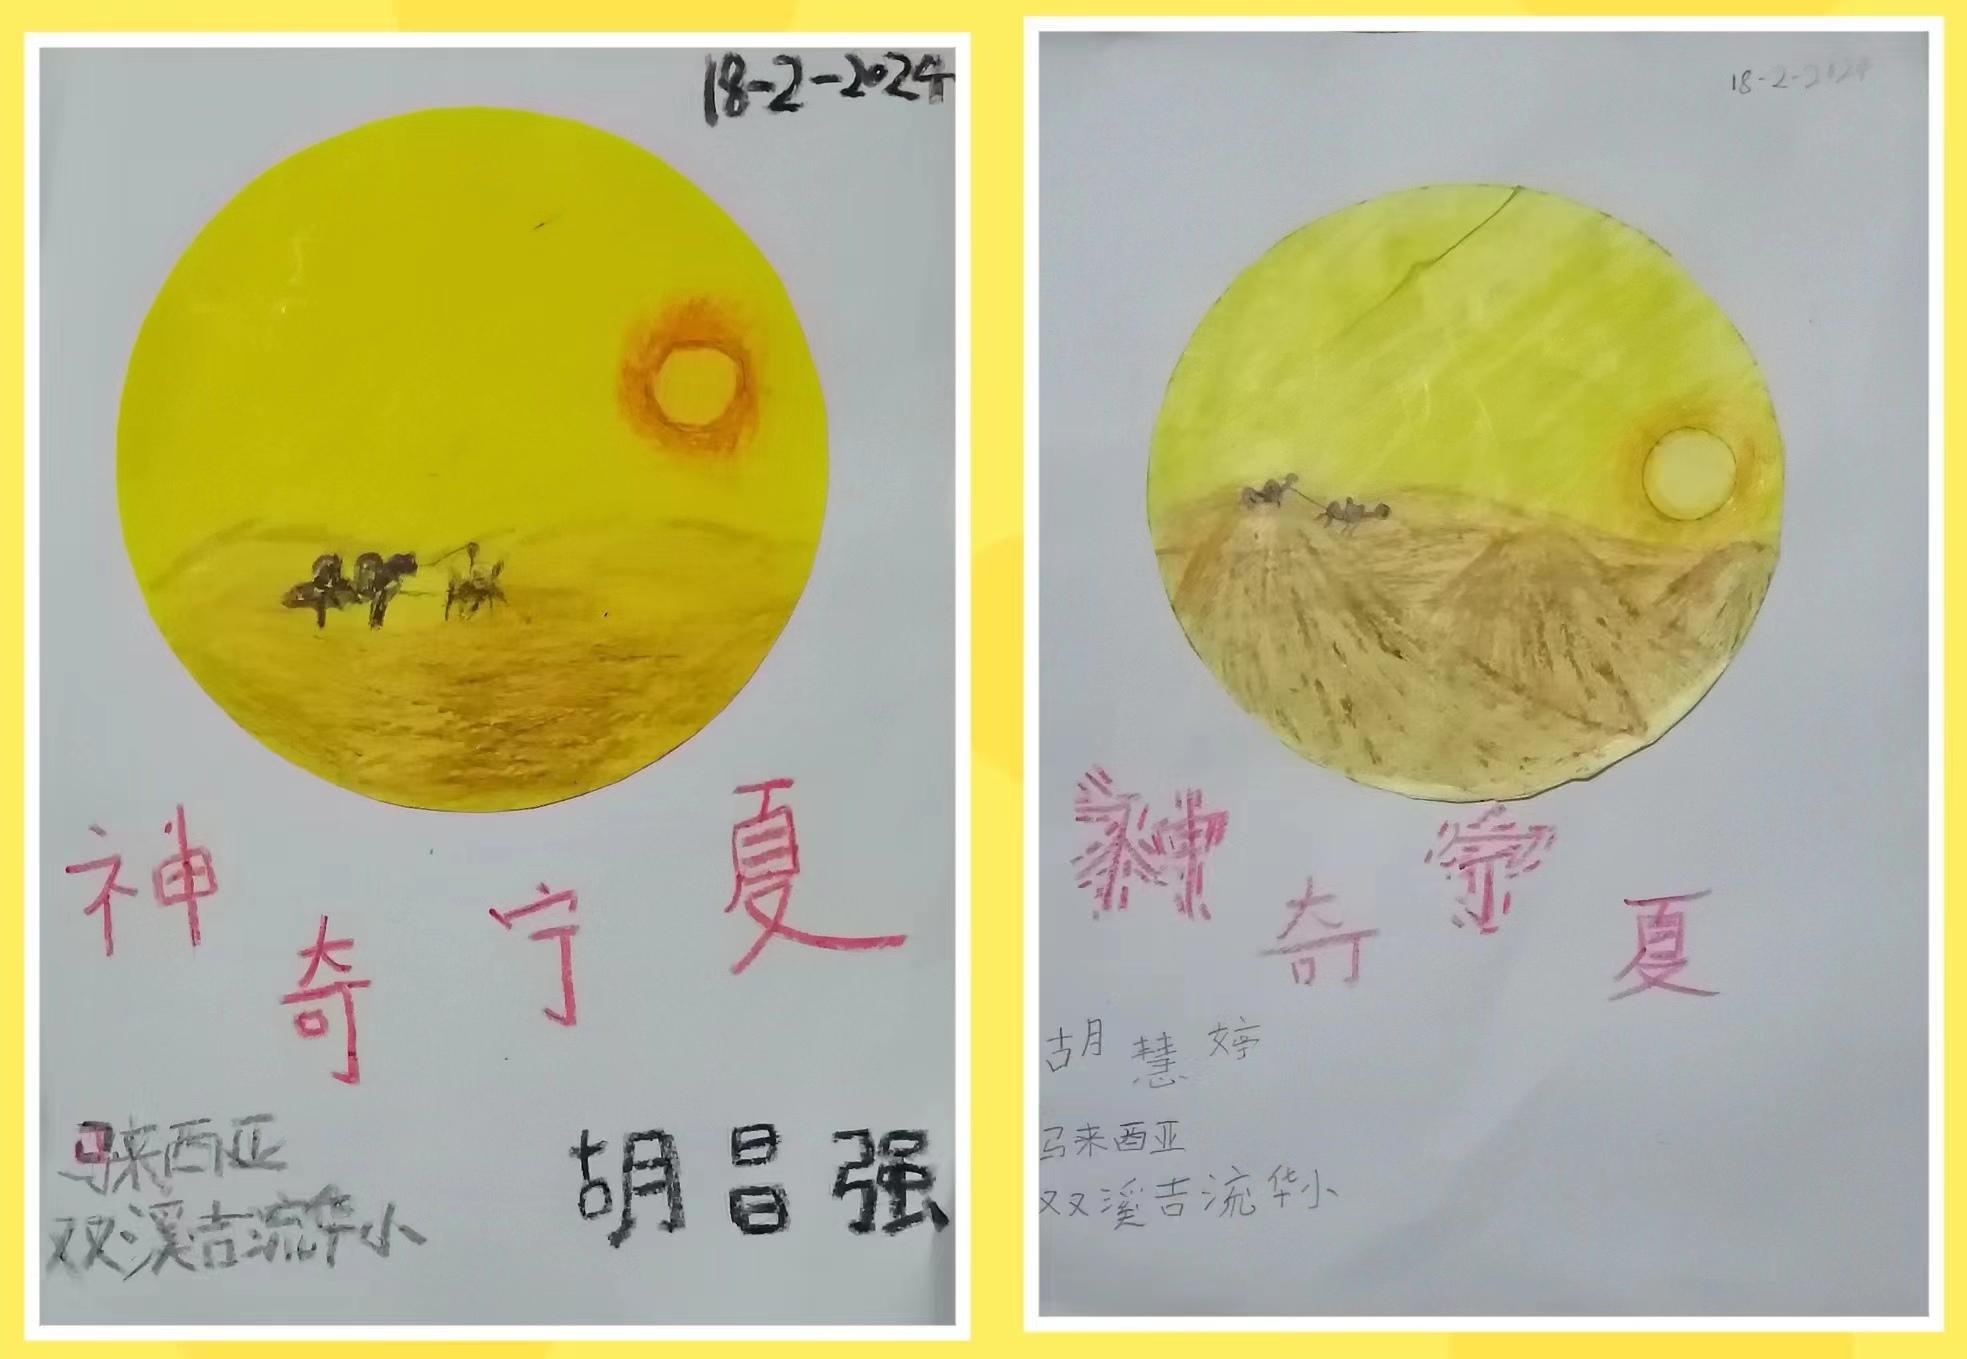 18-2-2024
神奇宁夏
马来西亚
双溪吉流华小
胡昌强
18-2-2024
神奇宁夏
胡慧婷
马来酉亚
双溪吉流华小